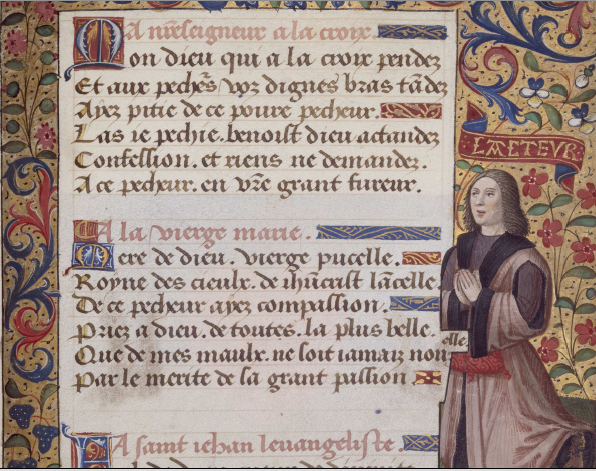 A nr̃eseigneur a la croix.
Mon dieu qui a la croix pendez
Et aux pechr̃s voz dignes bras tãdez
LACTEVR
Ayez pitie de ce poure pecheur.
Las ie pechie. benoist dieu actandez
Confession. et riens ne demandez.
A ce pecheur. en vr̃e grant fureur.
A la vierge marie.
Mere de dieu. vierge pucelle.
Royne des cieulx. de ihũcrist lãcelle
De ce pecheur ayez compassion.
Priez a dieu. de toutes. la plus belle.
Que de mes maulx. ne soit iamaiz nouuelle.
Par le merite de sa grant passion
A saint iehan leuangeliste.